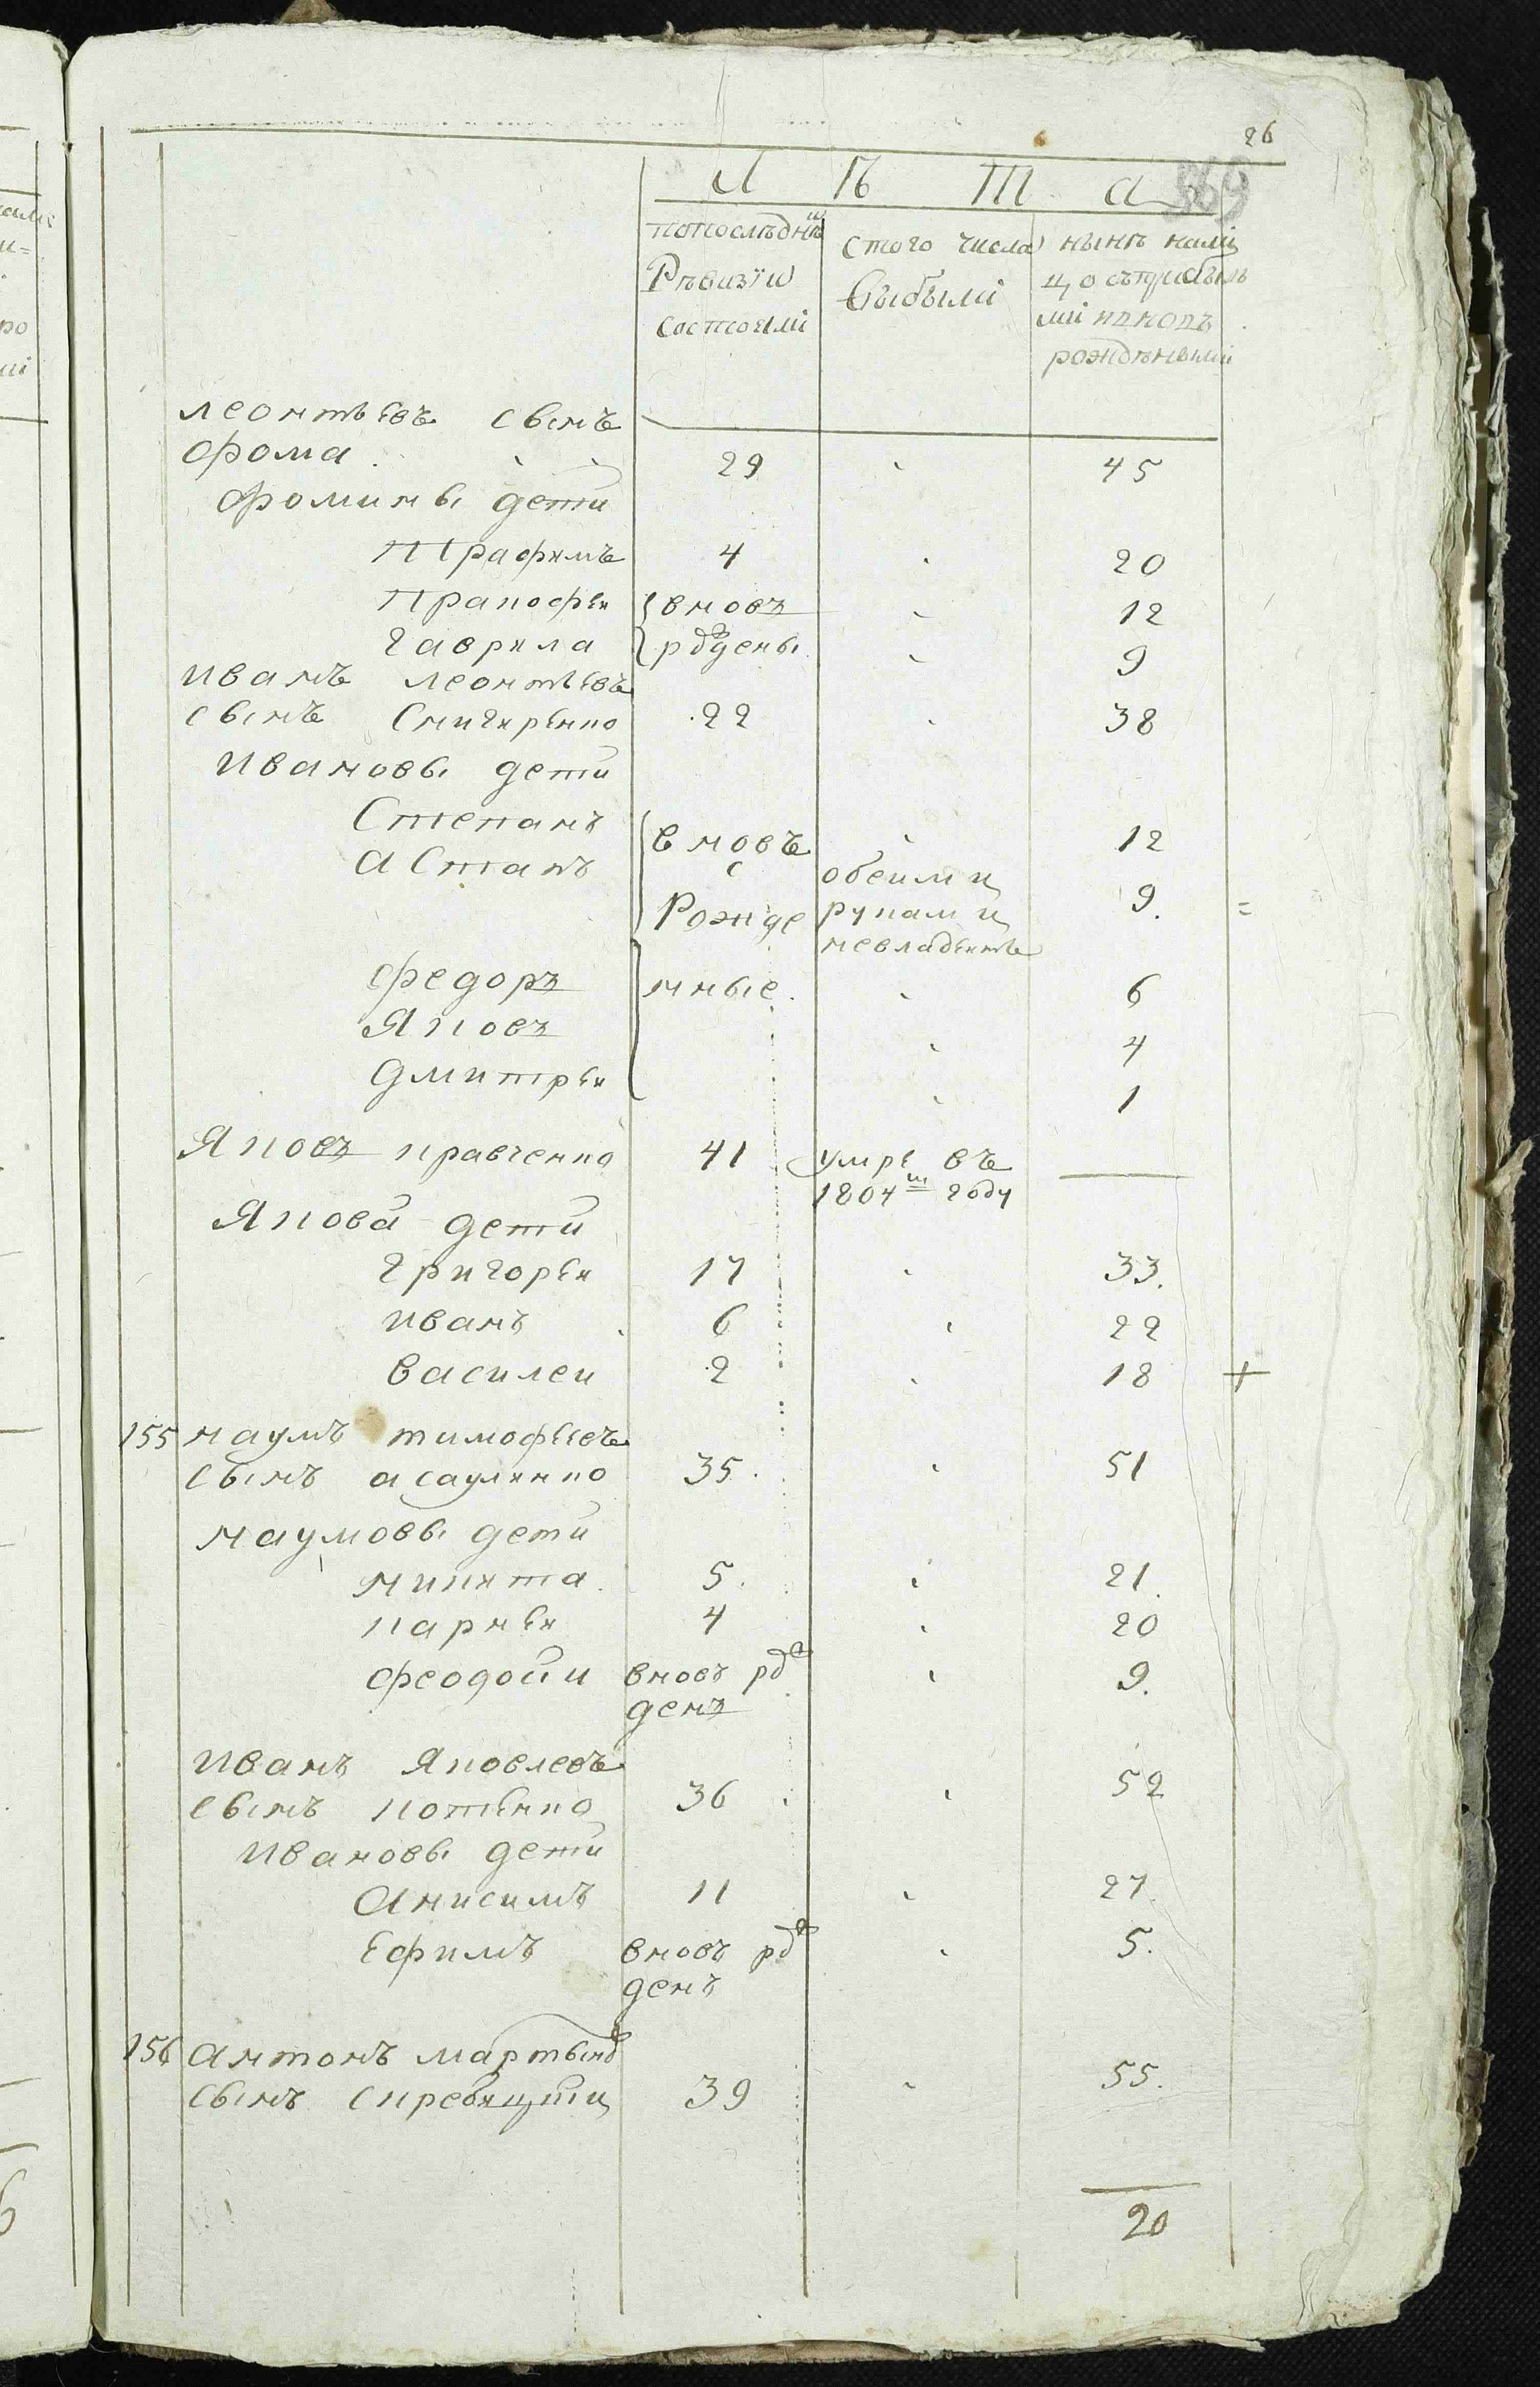 26
369
Л Ѣ Т А
попоследнѣй
Рѣвизїи
состояли
стого числа
выбыли
нынѣ налиц
цо съприбылы
ми
рождѣными
леонтьевъ сынъ
фома 29 45
фомины дети
Трафимъ 4 20
Пракофеи вновъ 12
гаврила рожденны 9
иванъ леонтьевъ
сынъ Снигиренко 22 38
ивановы дети
Степанъ вновъ 12
Астапъ Рожде обеими руками невладеитъ 9. =
федоръ нные 6
Яковъ 4
дмитреи 1
Яковъ кравченко 41 умре въ
1804м году
Якова дети
григореи 17 33.
иванъ 6 22
василеи 2 18 +
155 наумъ тимофеевъ
сынъ асауленко 35. 51
наумовы дети
микита 5. 21.
карнеи 4 20
феодоси вновъ рож 9.
денъ
иванъ Яковлевъ
сынъ котенко 36 52
ивановы дети
Анисимъ 11 27.
Ефимъ вновъ рож 5.
денъ
156 антонъ мартынов
сынъ 39 55.
20